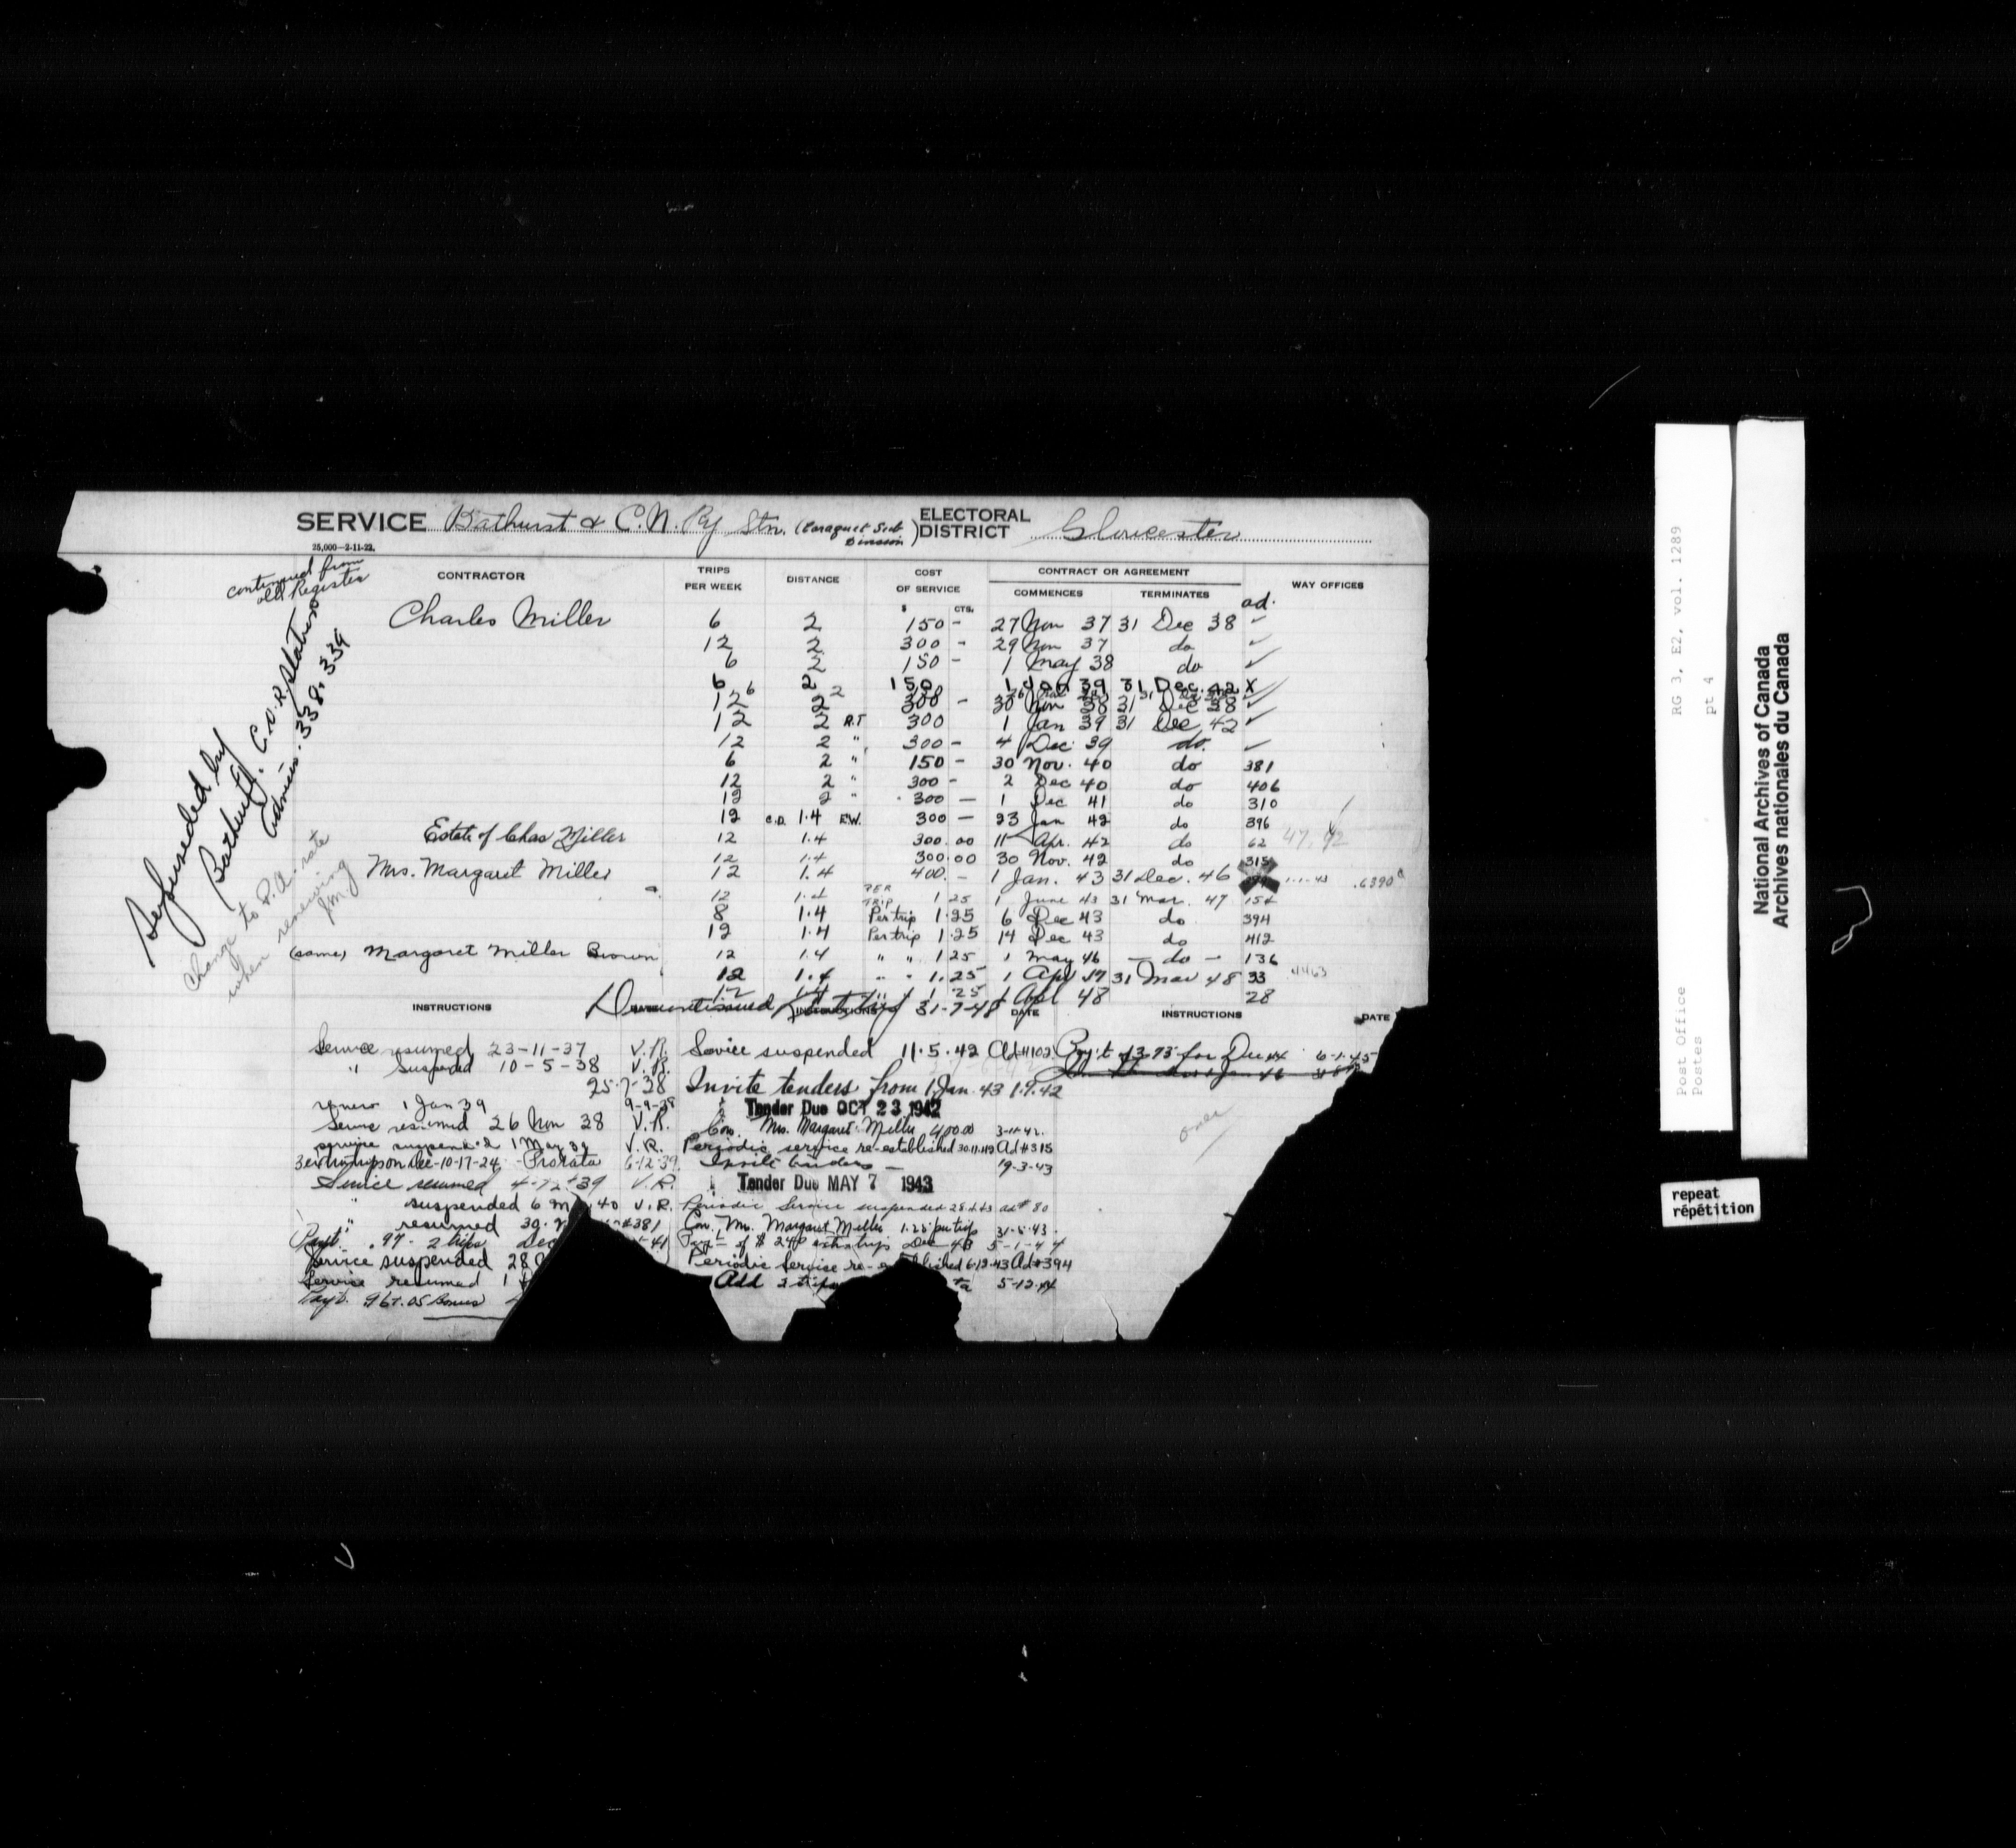 SERVICE Bathurst & C.N. Ry Stn. (Caraquet Sub Division) ELECTORAL DISTRICT Gloucester
25,000—2-11-22.
continued from old Register
CONTRACTOR TRIPS PER WEEK DISTANCE COST OF SERVICE CONTRACT OR AGREEMENT WAY OFFICES
$ CTS. COMMENCES TERMINATES ad.
Charles Miller 6 2 150 - 27 Nov 37 31 Dec 38 ✓
12 2 300 - 29 Nov 37 do ✓
6 2 150 - 1 May 38 do ✓
6 2 150 1 Jan 39 31 Dec. 42 X
12 2 300 - 30 Nov 38 31 Dec 38 ✓
12 2 R.T 300 1 Jan 39 31 Dec 42 ✓
12 2 " 300 - 4 Dec 39 do. ✓
6 2 " 150 - 30 Nov. 40 do 381
12 2 " 300 - 2 Dec 40 do 406
12 2 " 300 — 1 Dec 41 do 310
12 C.D. 1.4 E.W. 300 — 23 Jan 42 do 396
Estate of Chas Miller 12 1.4 300.00 11 Apr. 42 do 62 47.92
12 1.4 300.00 30 Nov. 42 do 315
Mrs. Margaret Miller 12 1.4 400. - 1 Jan. 43 31 Dec. 46 1-1-43 .6390
12 1.4 PER TRIP 1 25 1 June 43 31 Mar. 47 154
8 1.4 Per trip 1.25 6 Dec 43 do 394
12 1.4 Per trip 1.25 14 Dec 43 do 412
(same) Margaret Miller Brown 12 1.4 " " 1 25 1 May 46 — do — 136
12 1.4 " " 1.25 1 Apl 47 31 Mar 48 33 4463
12 1.4 " 1 25 1 Apl 48 28
Superseded by
Bathurst, C.N.R. Station
Admin. 338.339
Change to P.A. rate
when renewing
INSTRUCTIONS Discontinued 31-7-48 INSTRUCTIONS DATE INSTRUCTIONS DATE
Service resumed 23-11-37 V.R.
" suspended 10-5-38 V.R.
25-7-38
renew 1 Jan 39 9-9-38
Service resumed 26 Nov 38 V.R.
service suspended 1 May 39 V.R.
3 extra trips on Dec-10-17-24 - Prorata 6-12-39
Service resumed 4-12-39 V.R.
" suspended 6 40 V.R.
" resumed 30. #381
Payt. .97 - 2 trips Dec 41
Service suspended 28
Service resumed 1
Payt. Bonus
Service suspended 11.5.42 Ad#102
Invite tenders from 1 Jan. 43 1.9.42
Tender Due OCT 23 1942
Con. Mrs. Margaret Miller 400.00 3-11-42.
Periodic service re-established 30.11.42 Ad#315
Invite tenders — 19-3-43
Tender Due MAY 7 1943
Periodic Service suspended 28.4.43 ad# 80
Con. Mrs. Margaret Miller 1.25 per trip 31-5-43.
Payt of $ 2.40 extra trips Dec 43 5-1-44
Periodic Service re-established 6-12-43 Ad#394
Add 2 trips 5-12-44
Pay't of 3.75 for Dec 44 6-1-45
over
National Archives of Canada
Archives nationales du Canada
RG 3, E2, vol. 1289
pt 4
Post Office
Postes
repeat
répétition